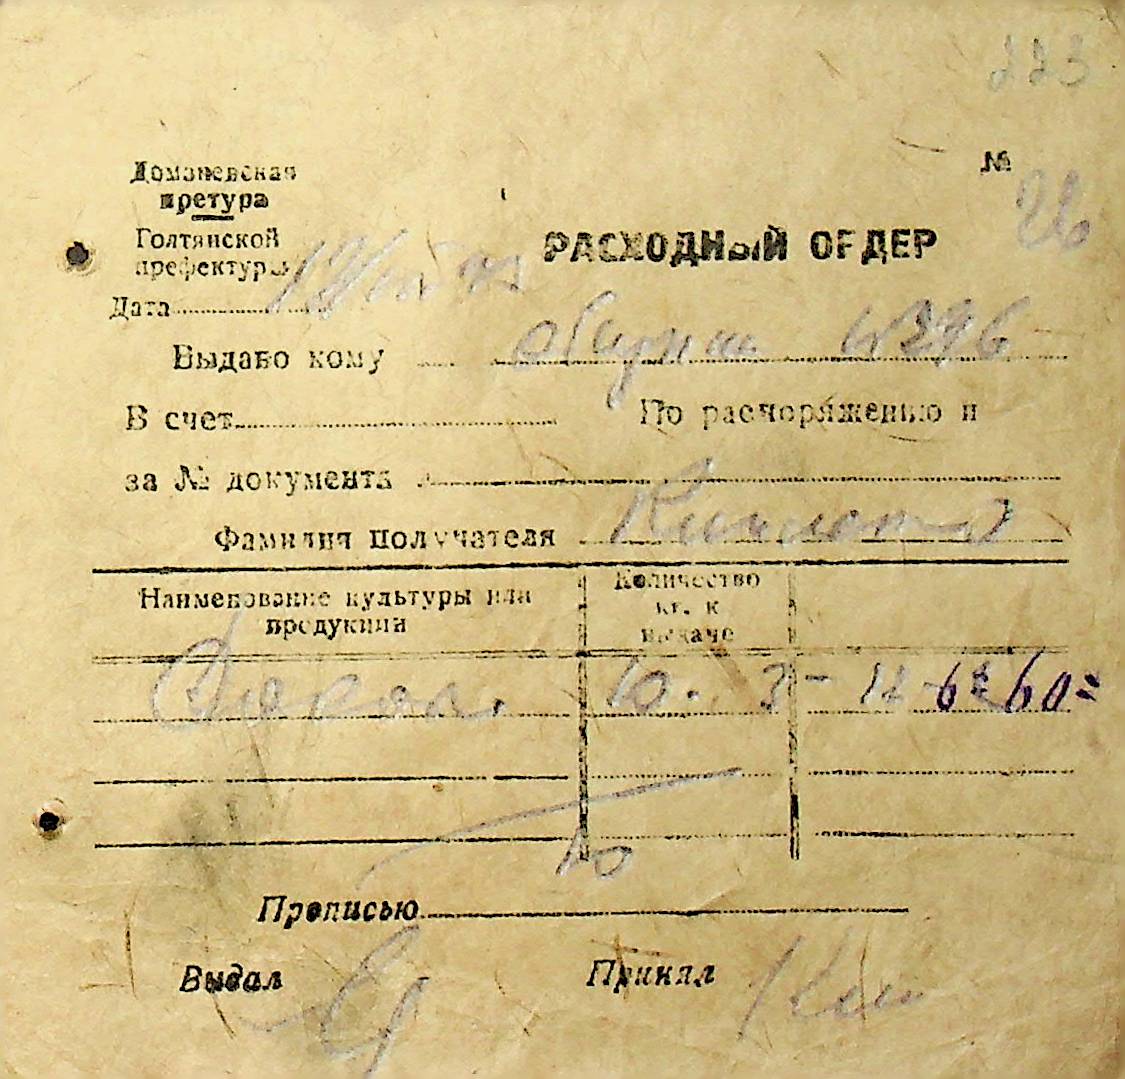 223
Доманевская
претура
Голтянской
префектуры
№ 26
РАСХОДНЫЙ ОРДЕР
Дата
Выдано кому № 296
В счет По распоряжению и
за № документа
Фамилия получателя
Наименование культуры или продукции Количество кг. к выдаче
10 - 3 - 12 - 6 60=
10
Прописью
Выдал Принял